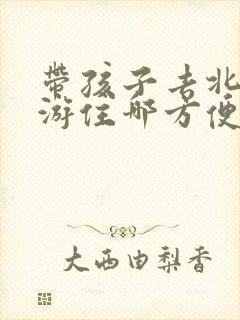 带孩子去北
游住哪方便
大西由梨香